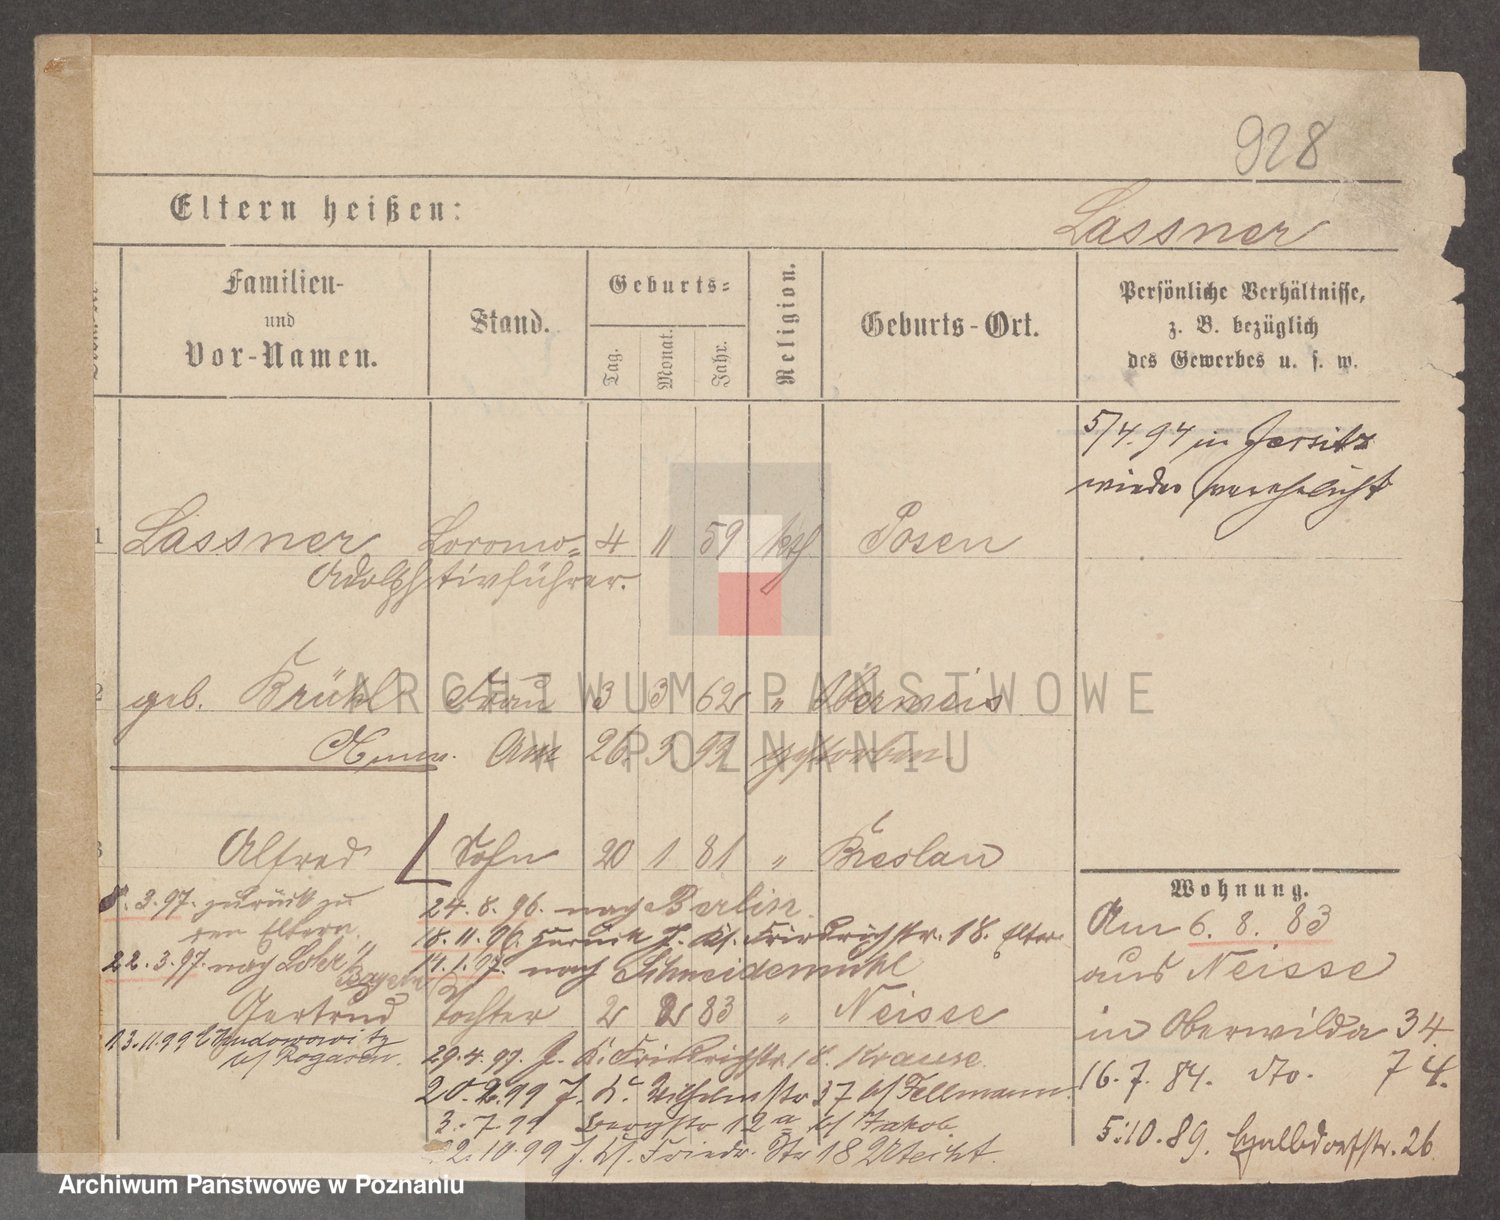 928
Eltern heißen:
Lassner
Familien-
und
Vor-Namen.
Stand.
Geburts-
Tag.
Monat.
Jahr.
Religion.
Geburts-Ort.
Persönliche Verhältnisse,
z. B. bezüglich
des Gewerbes u. s. w.
5/4.94 in Jersitz
wieder verehelicht
1 Lassner Locomo= 4 11 59 kth Posen
Adolph tivführer.
2 geb. Brühl Frau 3 3 62 "
Am 26. 3 93 gestorben
ARCHIWUM PAŃSTWOWE
W POZNANIU
3 Alfred Sohn 20 1 81 " Breslau
8.3.97. zurück zu
den Eltern.
22.3.97. nach Lohr
24.8.96. nach Berlin.
18.11.96. zurück J. Kl. Friedrichstr. 18. Eltern
14.1.97. nach Schneidemühl
Gertrud Tochter 2 2 83 " Neisse
13.11.99
b/ Rogasen.
29.4.97. J. Kl. Friedrichstr. 18. Krause.
20.2.99 J. Kl. Wilhelmstr 37 b/ Tellmann.
3.7.99 Bergstr 12a b/ Jakob
22.10.99 J. Kl. Friedr. Str 18
Wohnung.
Am 6. 8. 83
aus Neisse
in Oberwilda 34.
16.7. 84. do. 74.
5.10.89. Halbdorfstr. 26.
Archiwum Państwowe w Poznaniu